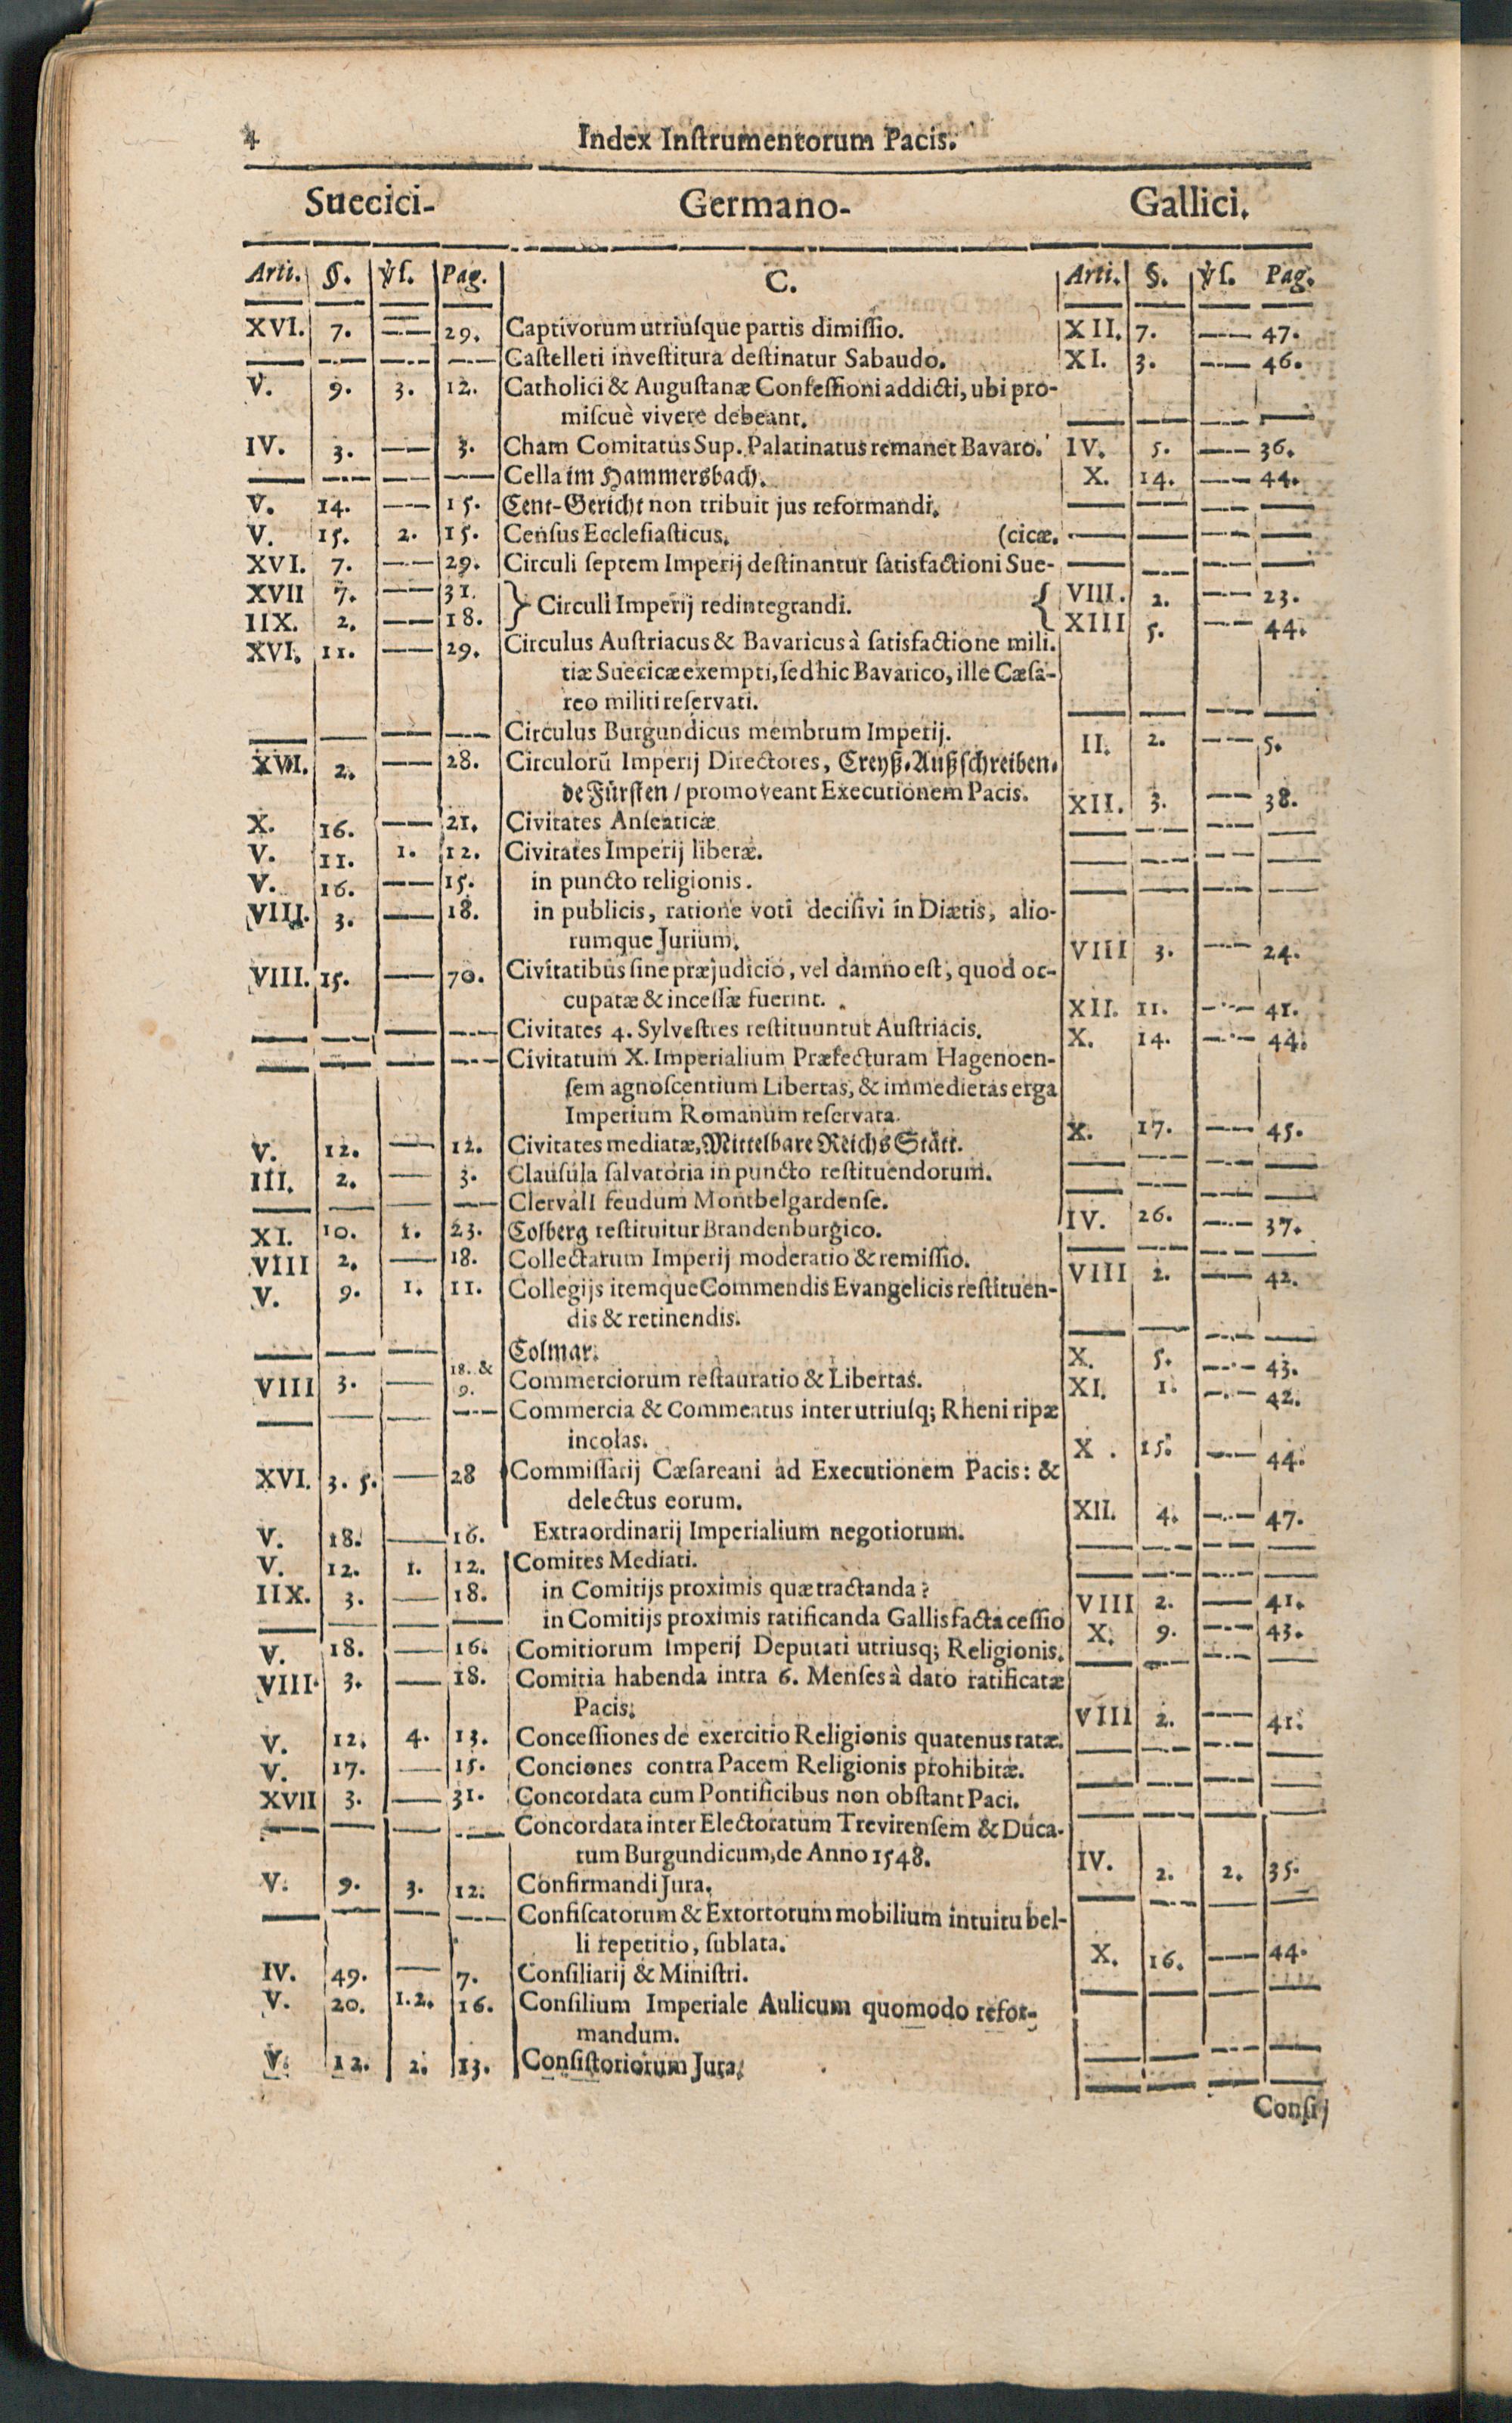 4 Index Inſtrumentorum Pacis.
Suecici- Germano- Gallici.
Arti. §. ℣ſ. Pag. C. Arti. §. ℣ſ. Pag.
XVI. 7. — 29. Captivorum utriuſque partis dimiſſio. XII. 7. — 47.
— — — — Caſtelleti inveſtitura deſtinatur Sabaudo. XI. 3. — 46.
V. 9. 3. 12. Catholici & Auguſtanæ Confeſſioni addicti, ubi pro-
miſcuè vivere debeant. — — — —
IV. 3. — 3. Cham Comitatus Sup. Palatinatus remanet Bavaro. IV. 5. — 36.
— — — — Cella im Hammersbach. X. 14. — 44.
V. 14. — 15. Cent-Gericht non tribuit jus reformandi. — — — —
V. 15. 2. 15. Cenſus Eccleſiaſticus. (cicæ. — — — —
XVI. 7. — 29. Circuli ſeptem Imperij deſtinantur ſatisfactioni Sue- — — — —
XVII 7. — 31. } Circuli Imperij redintegrandi. { VIII. 2. — 23.
IIX. 2. — 18. XIII 5. — 44.
XVI. 11. — 29. Circulus Auſtriacus & Bavaricus à ſatisfactione mili.
tiæ Suecicæ exempti, ſed hic Bavarico, ille Cæſa-
reo militi reſervati. — — — —
— — — — Circulus Burgundicus membrum Imperij. II. 2. — 5.
XVI. 2. — 28. Circulorū Imperij Directores, Creyß-Außſchreiben-
de Fürſten / promoveant Executionem Pacis. XII. 3. — 38.
X. 16. — 21. Civitates Anſeaticæ — — — —
V. 11. 1. 12. Civitates Imperij liberæ. — — — —
V. 16. — 15. in puncto religionis. — — — —
VIII. 3. — 18. in publicis, ratione voti deciſivi in Diætis, alio-
rumque Jurium. VIII 3. — 24.
VIII. 15. — 70. Civitatibus ſine præjudicio, vel damno eſt, quod oc-
cupatæ & inceſſæ fuerint. XII. 11. — 41.
— — — — Civitates 4. Sylveſtres reſtituuntur Auſtriacis. X. 14. — 44.
— — — — Civitatum X. Imperialium Præfecturam Hagenoen-
ſem agnoſcentium Libertas, & immedietas erga
Imperium Romanum reſervata. X. 17. — 45.
V. 12. — 12. Civitates mediatæ, Mittelbare Reichs Stätt. — — — —
III. 2. — 3. Clauſula ſalvatoria in puncto reſtituendorum. — — — —
— — — — Clervall feudum Montbelgardenſe. IV. 26. — 37.
XI. 10. 1. 23. Colberg reſtituitur Brandenburgico. — — — —
VIII 2. — 18. Collectarum Imperij moderatio & remiſſio. VIII 2. — 42.
V. 9. 1. 11. Collegijs itemque Commendis Evangelicis reſtituen-
dis & retinendis. — — — —
— — — Colmar. X. 5. — 43.
VIII 3. — 18. & 9. Commerciorum reſtauratio & Libertas. XI. 1. — 42.
— — — — Commercia & Commeatus inter utriuſq; Rheni ripæ
incolas. X. 15. — 44.
XVI. 3. 5. — 28 Commiſſarij Cæſareani ad Executionem Pacis: &
delectus eorum. XII. 4. — 47.
V. 18. — 16. Extraordinarij Imperialium negotiorum. — — — —
V. 12. 1. 12. Comites Mediati. — — — —
IIX. 3. — 18. in Comitijs proximis quæ tractanda? VIII 2. — 41.
— — — — in Comitijs proximis ratificanda Gallis facta ceſſio X. 9. — 43.
V. 18. — 16. Comitiorum Imperij Deputati utriusq; Religionis. — — — —
VIII. 3. — 18. Comitia habenda intra 6. Menſes à dato ratificatæ
Pacis. VIII 2. — 41.
V. 12. 4. 13. Conceſſiones de exercitio Religionis quatenus ratæ. — — — —
V. 17. — 15. Conciones contra Pacem Religionis prohibitæ. — — — —
XVII 3. — 31. Concordata cum Pontificibus non obſtant Paci. — — — —
— — — — Concordata inter Electoratum Trevirenſem & Duca-
tum Burgundicum, de Anno 1548. IV. 2. 2. 35.
V. 9. 3. 12. Confirmandi Jura. — — — —
— — — — Confiſcatorum & Extortorum mobilium intuitu bel-
li repetitio, ſublata. X. 16. — 44.
IV. 49. — 7. Conſiliarij & Miniſtri. — — — —
V. 20. 1.2. 16. Conſilium Imperiale Aulicum quomodo refor-
mandum. — — — —
V. 12. 2. 13. Conſiſtoriorum Jura. — — — —
Conſij